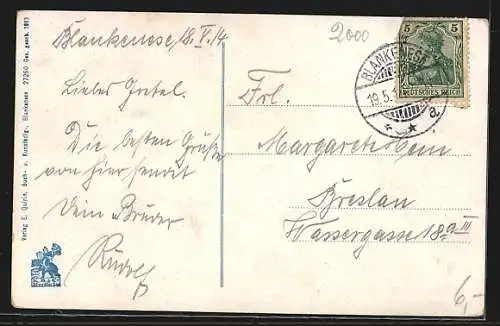 Blankenese, 18.V.14.
Liebes Gretel.
Die besten Grüße
von hier sendet
Dein Bruder
Rudolf
2000
5 5
DEUTSCHES REICH
BLANKENESE
19.5.1
a.
Frl.
Margarete Hein
Breslau
Wassergasse 18a III
6,-
Verlag E. Quirin, Buch- u. Kunsthdlg., Blankenese 27260 Ges. gesch. 1913